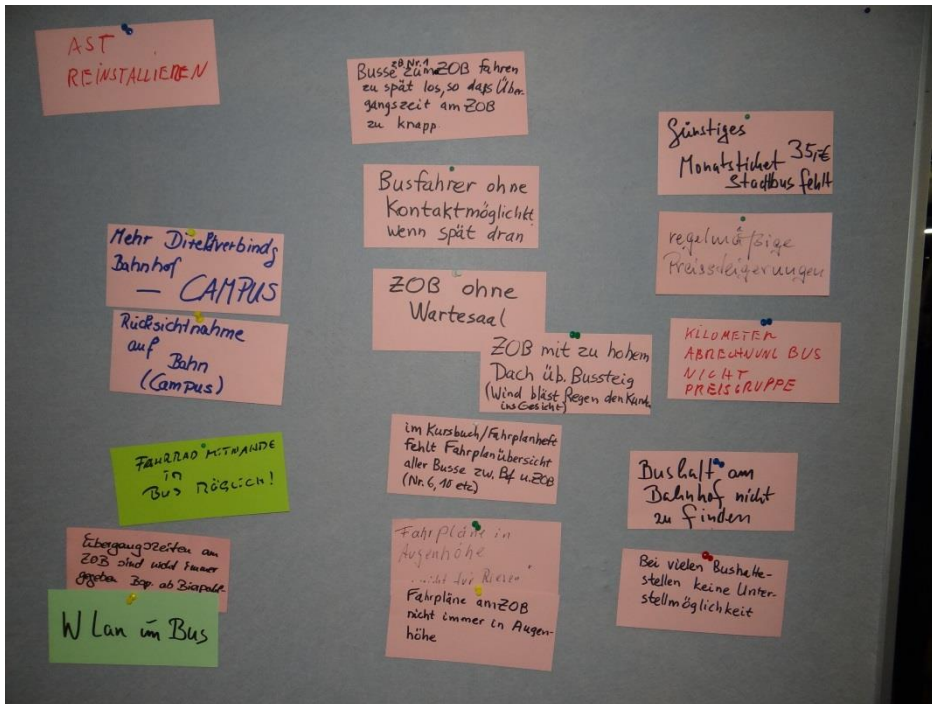 AST
REINSTALLIEREN
Mehr Direktverbindg
Bahnhof
— CAMPUS
Rücksichtnahme
auf
Bahn
(Campus)
FAHRRAD MITNAHME
in
BUS MÖGLICH!
Übergangszeiten am
ZOB sind wohl immer
gegeben Bsp. ab
W Lan im Bus
zB Nr. 1
Busse zum ZOB fahren
zu spät los, so daß Über-
gangszeit am ZOB
zu knapp.
Busfahrer ohne
Kontaktmöglichkt
wenn spät dran
ZOB ohne
Wartesaal
ZOB mit zu hohem
Dach üb. Bussteig
(Wind bläst Regen den Kund.
ins Gesicht)
im Kursbuch/Fahrplanheft
fehlt Fahrplanübersicht
aller Busse zw. Bf u. ZOB
(Nr. 6, 10 etc)
Fahrpläne in
Augenhöhe
nicht für Riesen"
Fahrpläne am ZOB
nicht immer in Augen-
höhe
Günstiges
Monatsticket 35,-€
Stadtbus fehlt
regelmäßige
Preissteigerungen
KILOMETER
ABRECHNUNG BUS
NICHT
PREISGRUPPE
Bushalt am
Bahnhof nicht
zu finden
Bei vielen Bushalte-
stellen keine Unter-
stellmöglichkeit